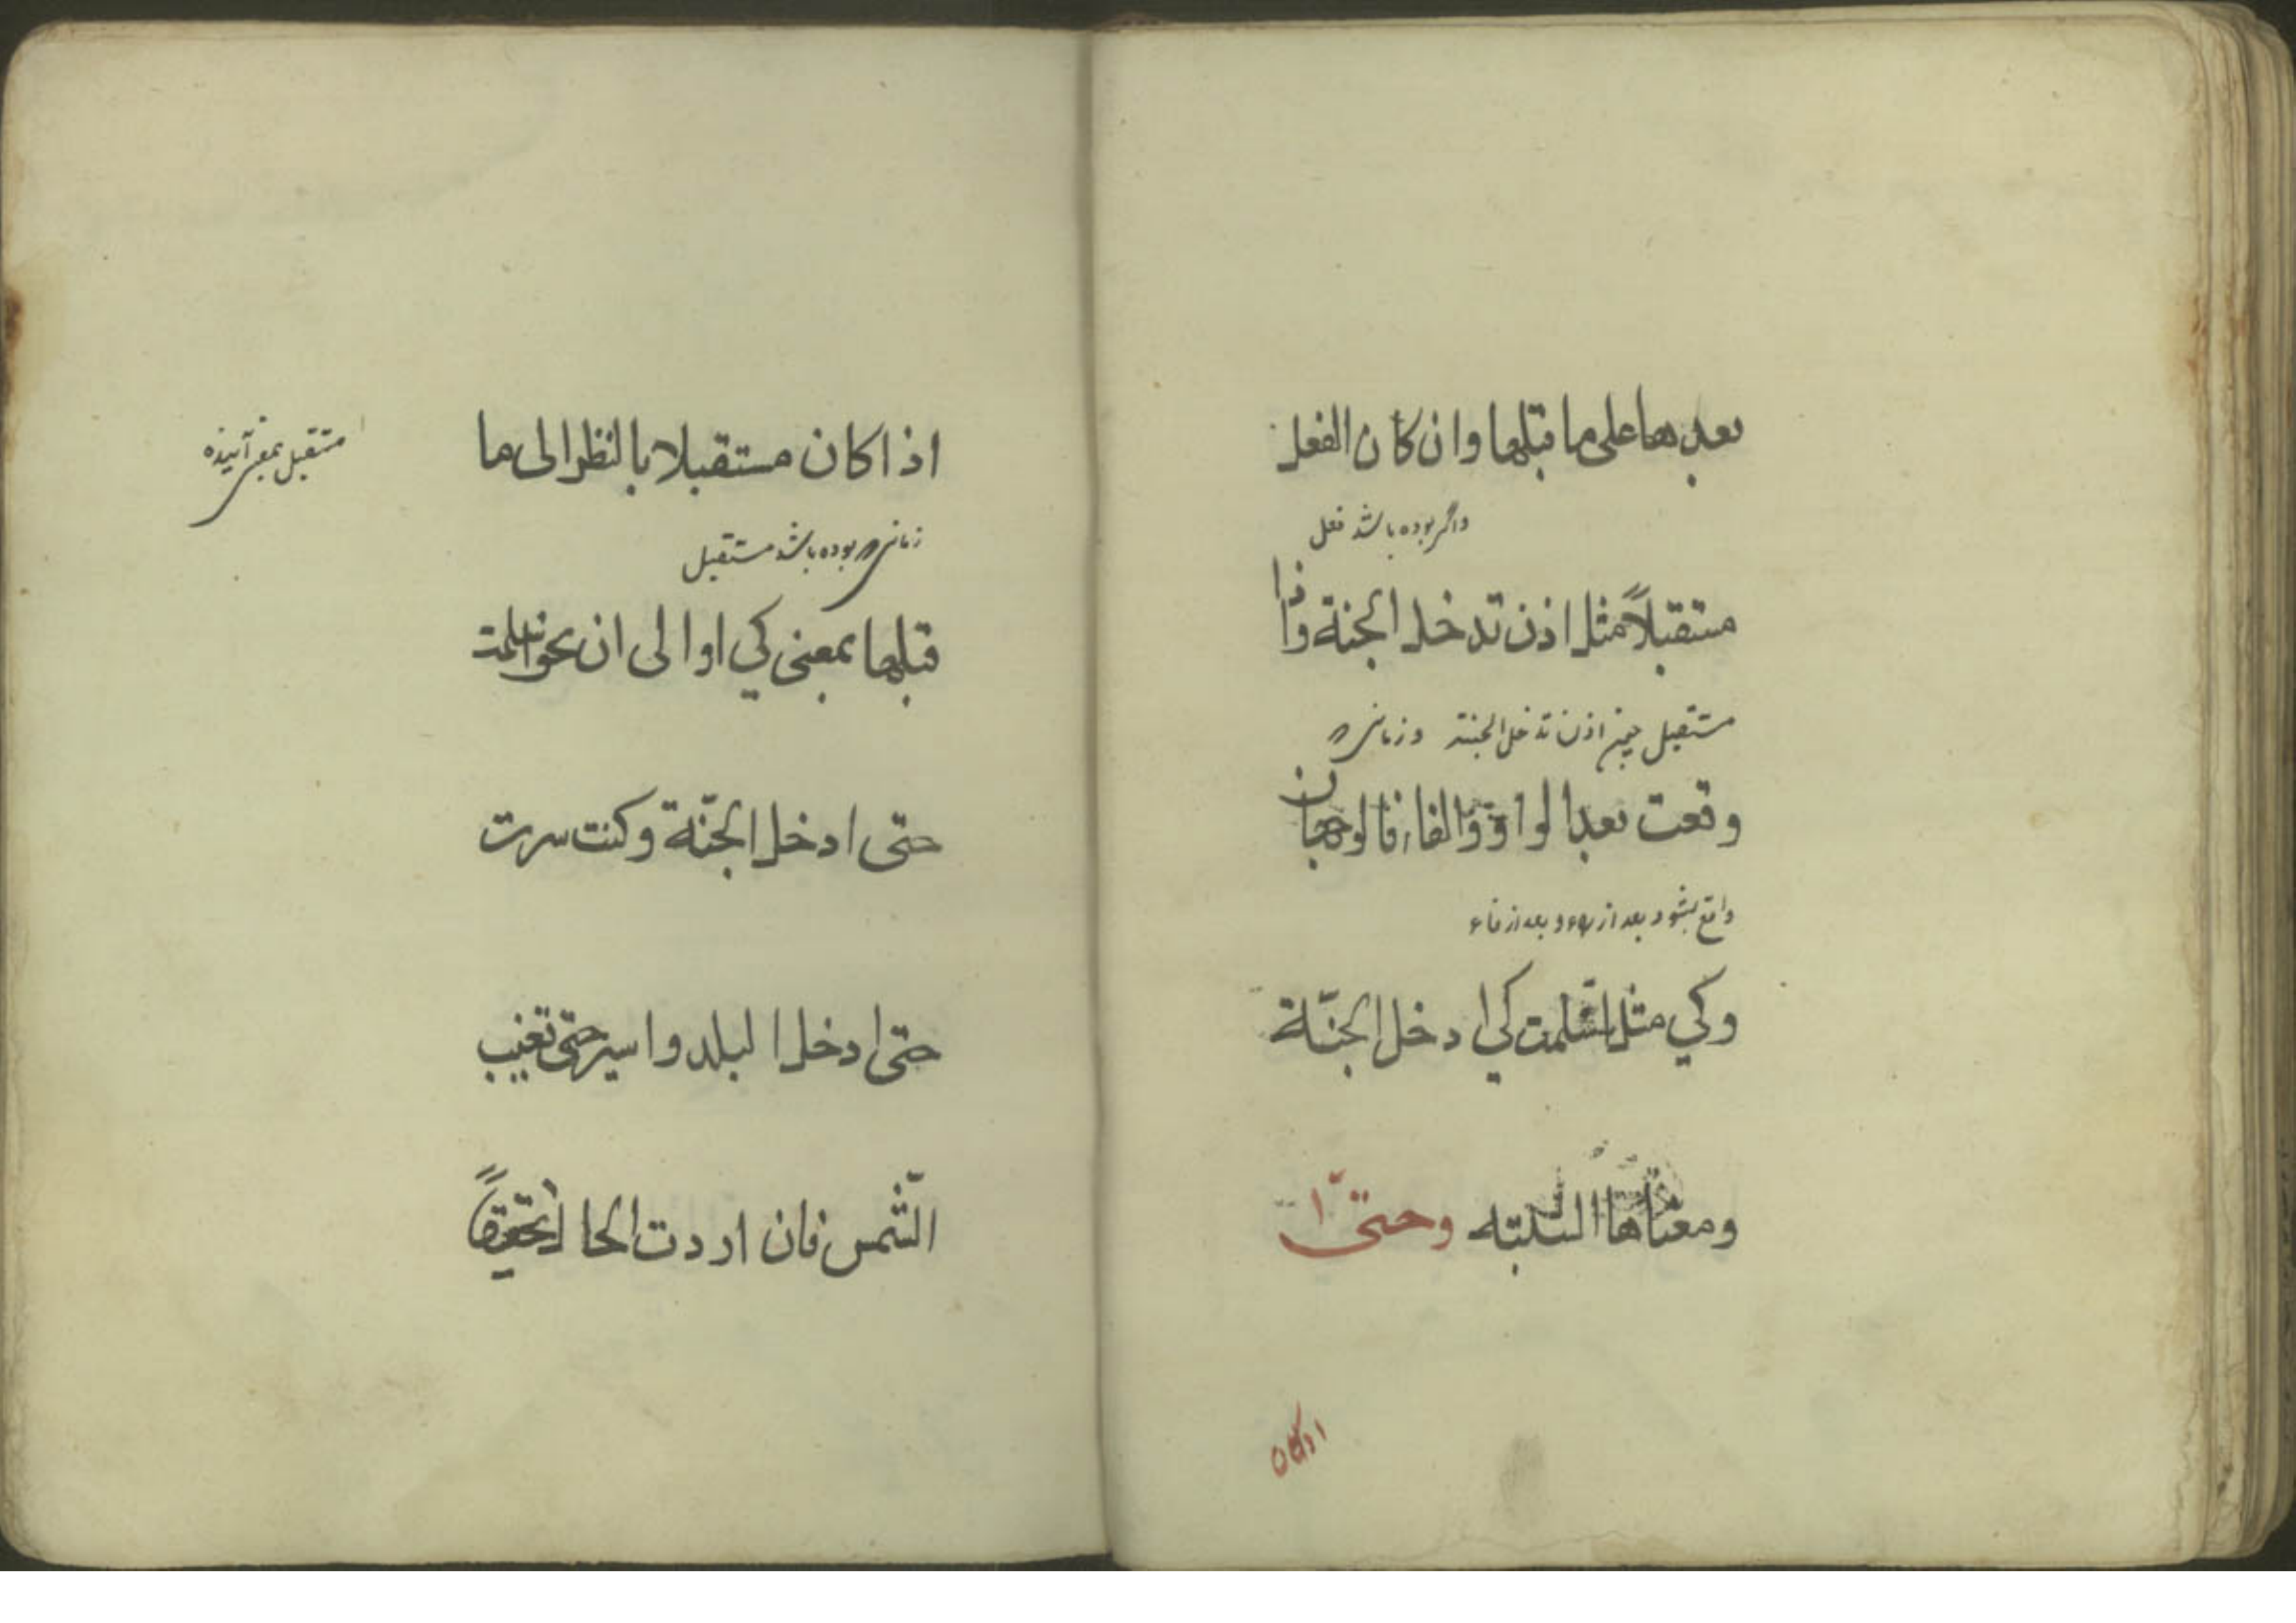 بعدها على ما قبلها وان كان الفعل
واگر بوده باشد فعل
مستقبلاً مثل اذن تدخل الجنة واذا
مستقبل چون اذن تدخل الجنة وزمانى كه
وقعت بعد الواو والفاء فالوجهان
واقع بشود بعد از واو و بعد از فاء
وكي مثل اسلمت كي ادخل الجنّة
ومعناها السببيه وحتّى
اذا كان
اذا كان مستقبلا بالنظر الى ما
مستقبل بمعنى آينده
زمانى كه بوده باشد مستقبل
قبلها بمعنى كي او الى ان نحو اسلمت
حتى ادخل الجنّة وكنت سرت
حتى ادخل البلد واسير حتى تغيب
الشّمس فان اردت الحال تحقيقاً